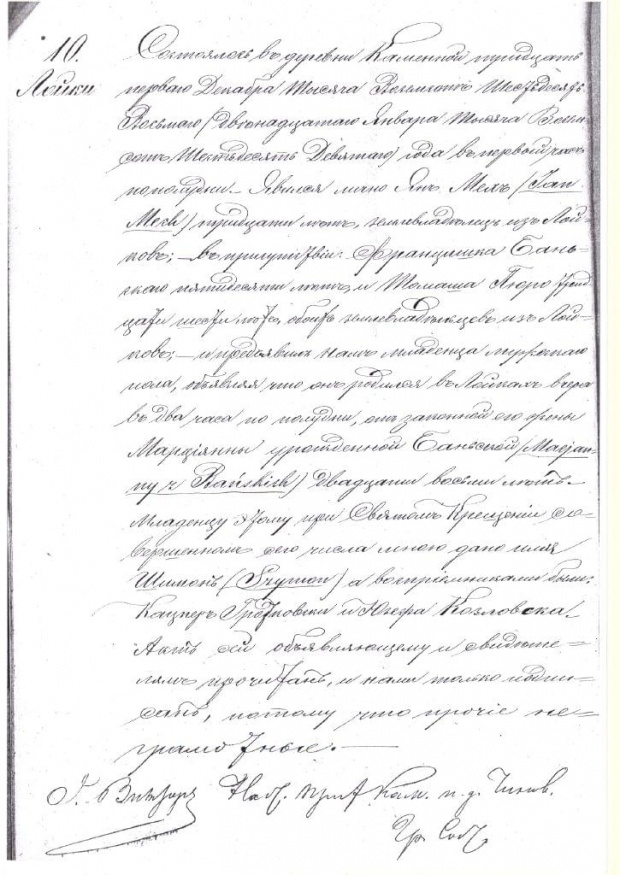 10.
Лойки
Состоялось въ деревни Каменной тридцать
перваго Декабря Тысяча Восемьсотъ Шестьдесятъ
Восьмаго (двенадцатаго Января Тысяча Восемь-
сотъ Шестьдесятъ Девятаго) года въ первой часъ
пополудни. – Явился лично Янъ Мехъ (Jan
Mech) тридцати лѣтъ, землевладѣлецъ изъ Лой-
ковъ; – въ присутствіи: Францишка Бань-
скаго пятидесяти лѣтъ, и Томаша Пюро трид-
цати шести лѣтъ, обоихъ землевладѣльцевъ изъ Лой-
ковъ; – и предъявилъ намъ младенца мужескаго
пола, объявляя что онъ родился въ Лойкахъ вчера
въ два часа по полудни, отъ законной его жены
Марціянны урожденной Баньской (Marjan-
ny z Bańskich) двадцати восьми лѣтъ. –
Младенцу этому при Святомъ Крещеніи со-
вершенномъ сего числа мною дано имя
Шимонъ (Szymon) а воспріемниками были:
Кацперъ и Юзефа Козловска.
Актъ сей объявляющему и свидѣте-
лямъ прочитанъ, и нами только подпи-
санъ, потому что прочіе не-
грамотные. –
Кам. п. д. Чинов.
Гр. Сост.